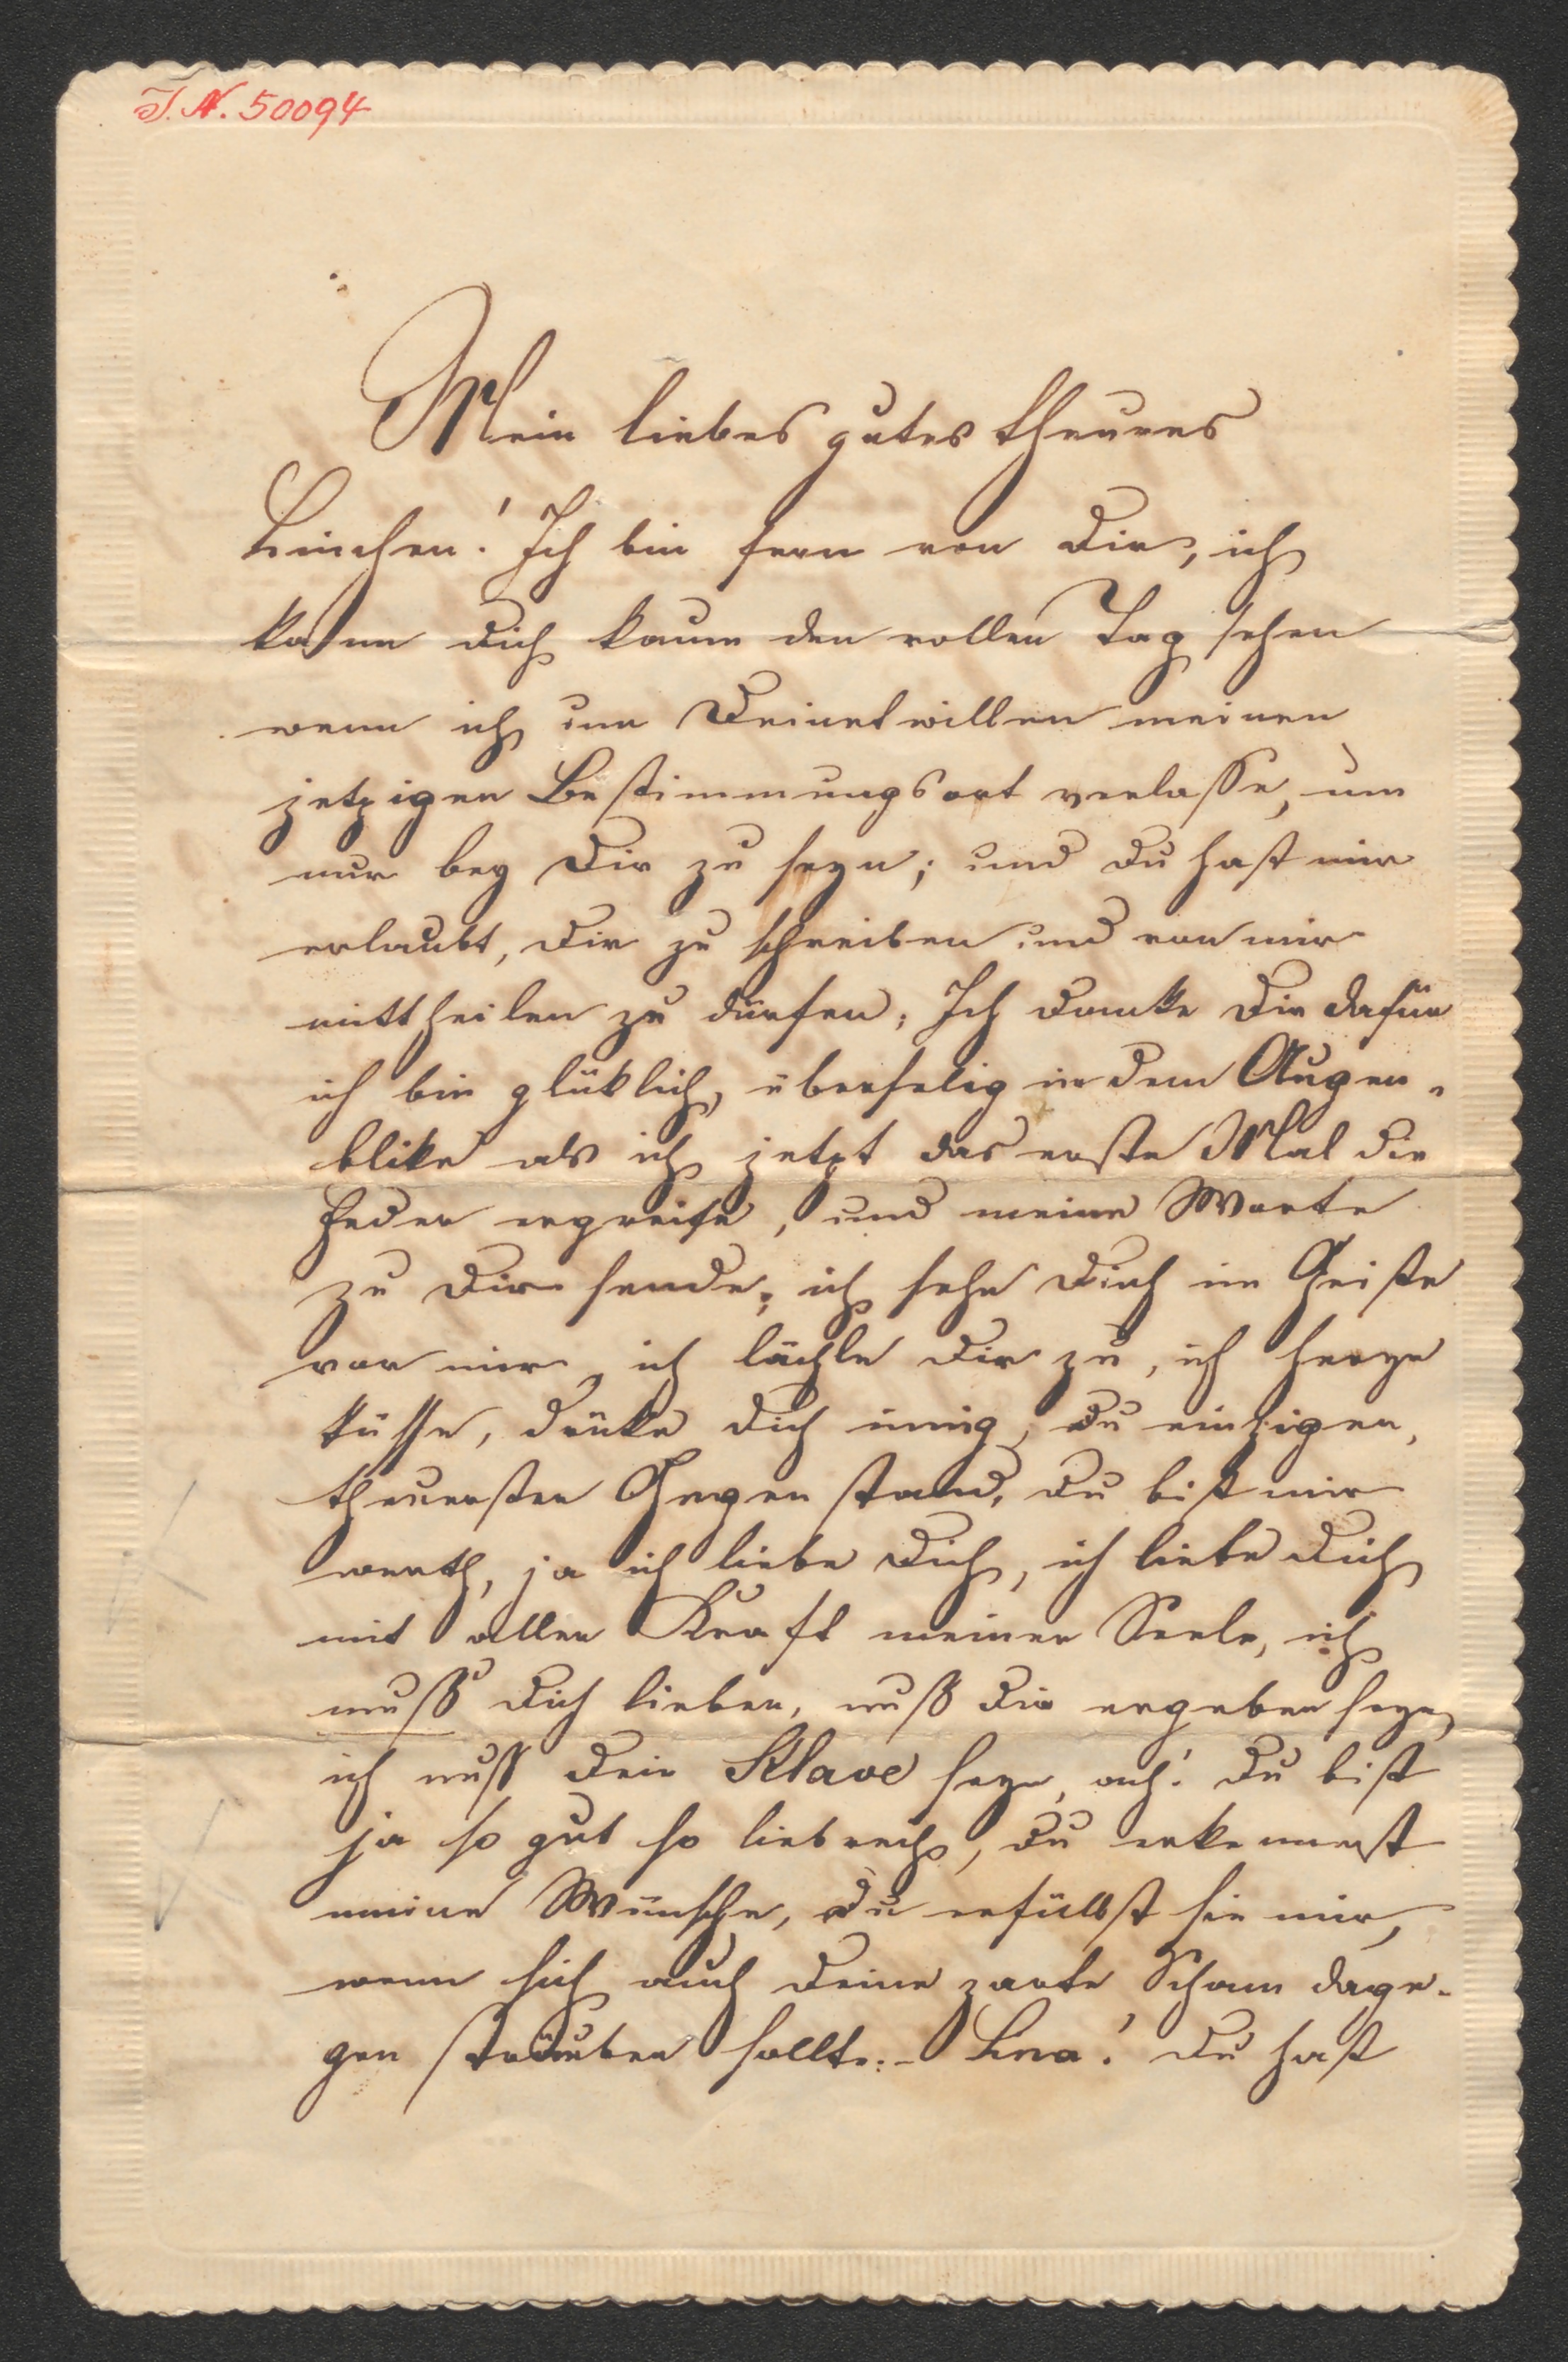 J. N. 50094
Mein liebes gutes theures
Linchen! Ich bin fern von Dir, ich
kann Dich kaum den vollen Tag sehen
wenn ich um Deinetwillen meinen
jetzigen Bestimmungsort verlasse, um
nur bey Dir zu seyn; und Du hast mir
erlaubt, Dir zu schreiben und von mir
mittheilen zu dürfen; Ich danke Dir dafür
ich bin glüklich, überselig in dem Augen-
blike als ich jetzt das erste Mal die
Feder ergreife, und meine Worte
zu Dir sende; ich sehe Dich im Geiste
vor mir, ich lächle Dir zu, ich herze
küsse, drüke Dich innig, Du einzigen,
theuersten Gegenstand, Du bist mir
werth, ja ich liebe Dich, ich liebe Dich
mit aller Kraft meiner Seele, ich
muß Dich lieben, muß Dir ergeben seyn,
ich muß Dein Sklave seyn, ach! Du bist
ja so gut so liebreich, Du erkennest
meine Wünsche, Du erfüllst sie mir,
wenn sich auch Deine zarte Scham dage-
gen sträuben sollte. - Lina! Du hast